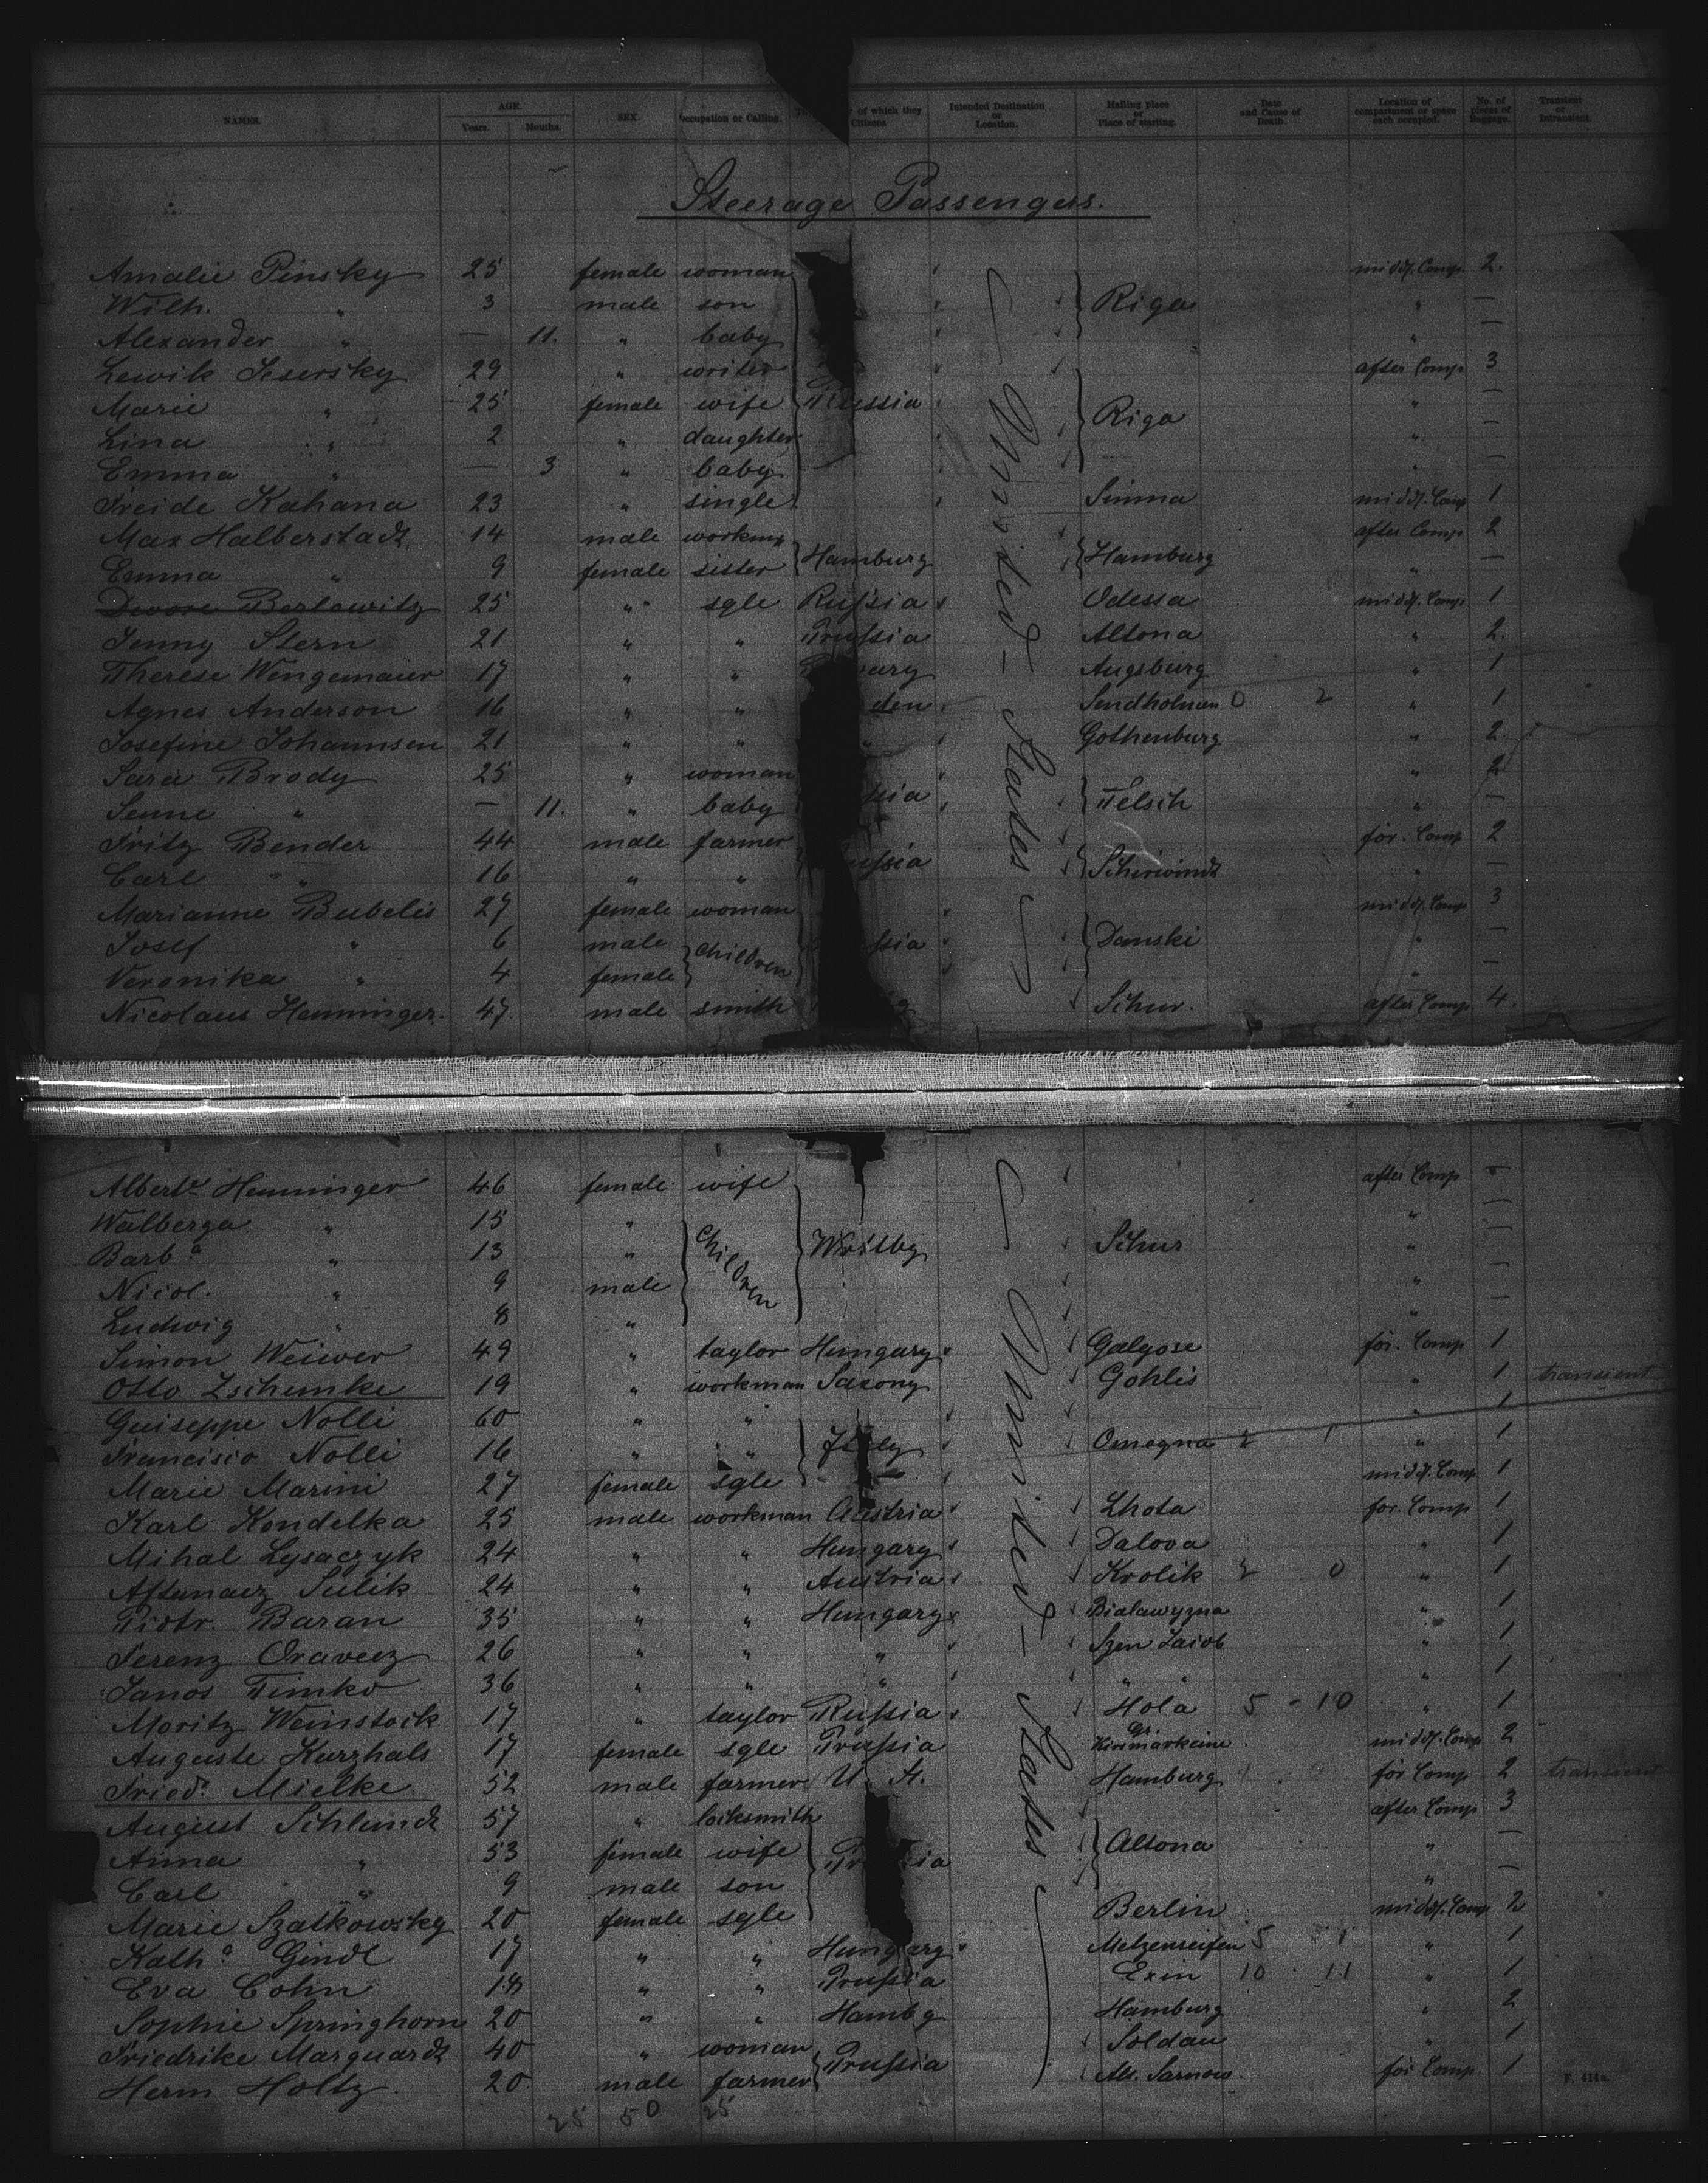 NAMES. AGE. Years. Months. SEX. Occupation or Calling. of which they Citizens Intended Destination or Location. Hailing place or Place of starting. Date and Cause of Death. Location of compartment or space each occupied. No. of pieces of Baggage. Transient or Intransient.
Steerage Passengers.
Amalie Pinsky 25 female woman midd. Comp. 2.
Wilh. " 3 male son Riga " —
Alexander " — 11. " baby " —
Lewik Jesersky 29 " writer after Comp. 3
Marie " 25 female wife Russia " —
Lina " 2 " daughter Riga " —
Emma " — 3 " baby " —
Freide Kahana 23 " single Simna midd. Comp 1
Max Halberstadt 14 male workm after Comp 2
Emma " 9 female sister Hamburg Hamburg " —
Devore Berlowitz 25 " sgle Rußia Odessa midd. Comp. 1
Jenny Stern 21 " " Prußia Altona " 2.
Therese Wengemaier 17 " " Augsburg " 1
Agnes Anderson 16 " " den Sendholmen 0 2 " 1
Josefine Johannsen 21 " " " Gothenburg " 2
Sara Brody 25 " woman " 2
Senne " — 11. " baby ßia Telsch " —
Fritz Bender 44 male farmer for. Comp 2
Carl " 16 " " ußia Schirwindt " —
Marianne Bubelis 27 female woman midd. Comp 3
Josef " 6 male children ßia Damski " —
Veronika " 4 female " —
Nicolaus Henninger. 47 male smith Schur. after Comp. 4.
United States
Albert Henninger 46 female wife after Comp —
Walberga " 15 " " —
Barba " 13 " children Wrttbg Schur " —
Nicol. " 9 male " —
Ludwig " 8 " "
Simon Weiwer 49 " taylor Hungary Galgose for. Comp 1
Otto Zschemke 19 " workman Saxony Gohlis " 1 transient
Guiseppe Nolli 60 " " " 1
Francisco Nolli 16 " " Italy Omegna 2 1 " 1
Marie Marini 27 female sgle midd. Comp 1
Karl Kondelka 25 male workman Austria Lhota for. Comp 1
Mihal Lysaczyk 24 " " Hungary Dalova " 1
Aftanacz Sulik 24 " " Austria Krolik 2 0 " 1
Piotr. Baran 35 " " Hungary Bialawyzna " 1
Ferenz Oravecz 26 " " " Szen Jacob " 1
Janos Timko 36 " " " " " " 1
Moritz Weinstock 17 " taylor Rußia Hola 5 - 10 " 1
Auguste Kurzhals 17 female sgle Prußia Gr. midd. Comp 2
Fried. Mielke 52 male farmer U. St. Hamburg for Comp 2 transient
August Schlundt 57 " locksmith after Comp 3
Anna " 53 female wife Pr ia Altona " —
Carl " 9 male son " —
Marie Szatkowsky 20 female sgle Berlin midd. Comp 2
Katha Gindl 17 " " Hungary Metzenseifen 5 " 1
Eva Cohn 18 " " Prußia Exin 10 11 " 1
Sophie Springhorn 20 " " Hambg Hamburg " 2
Friedrike Marquardt 40 " woman Prußia Soldau " 1
Herm Holtz. 20 male farmer Alt. Sarnow for Comp 1
United States
F. 414a.
25 50 25